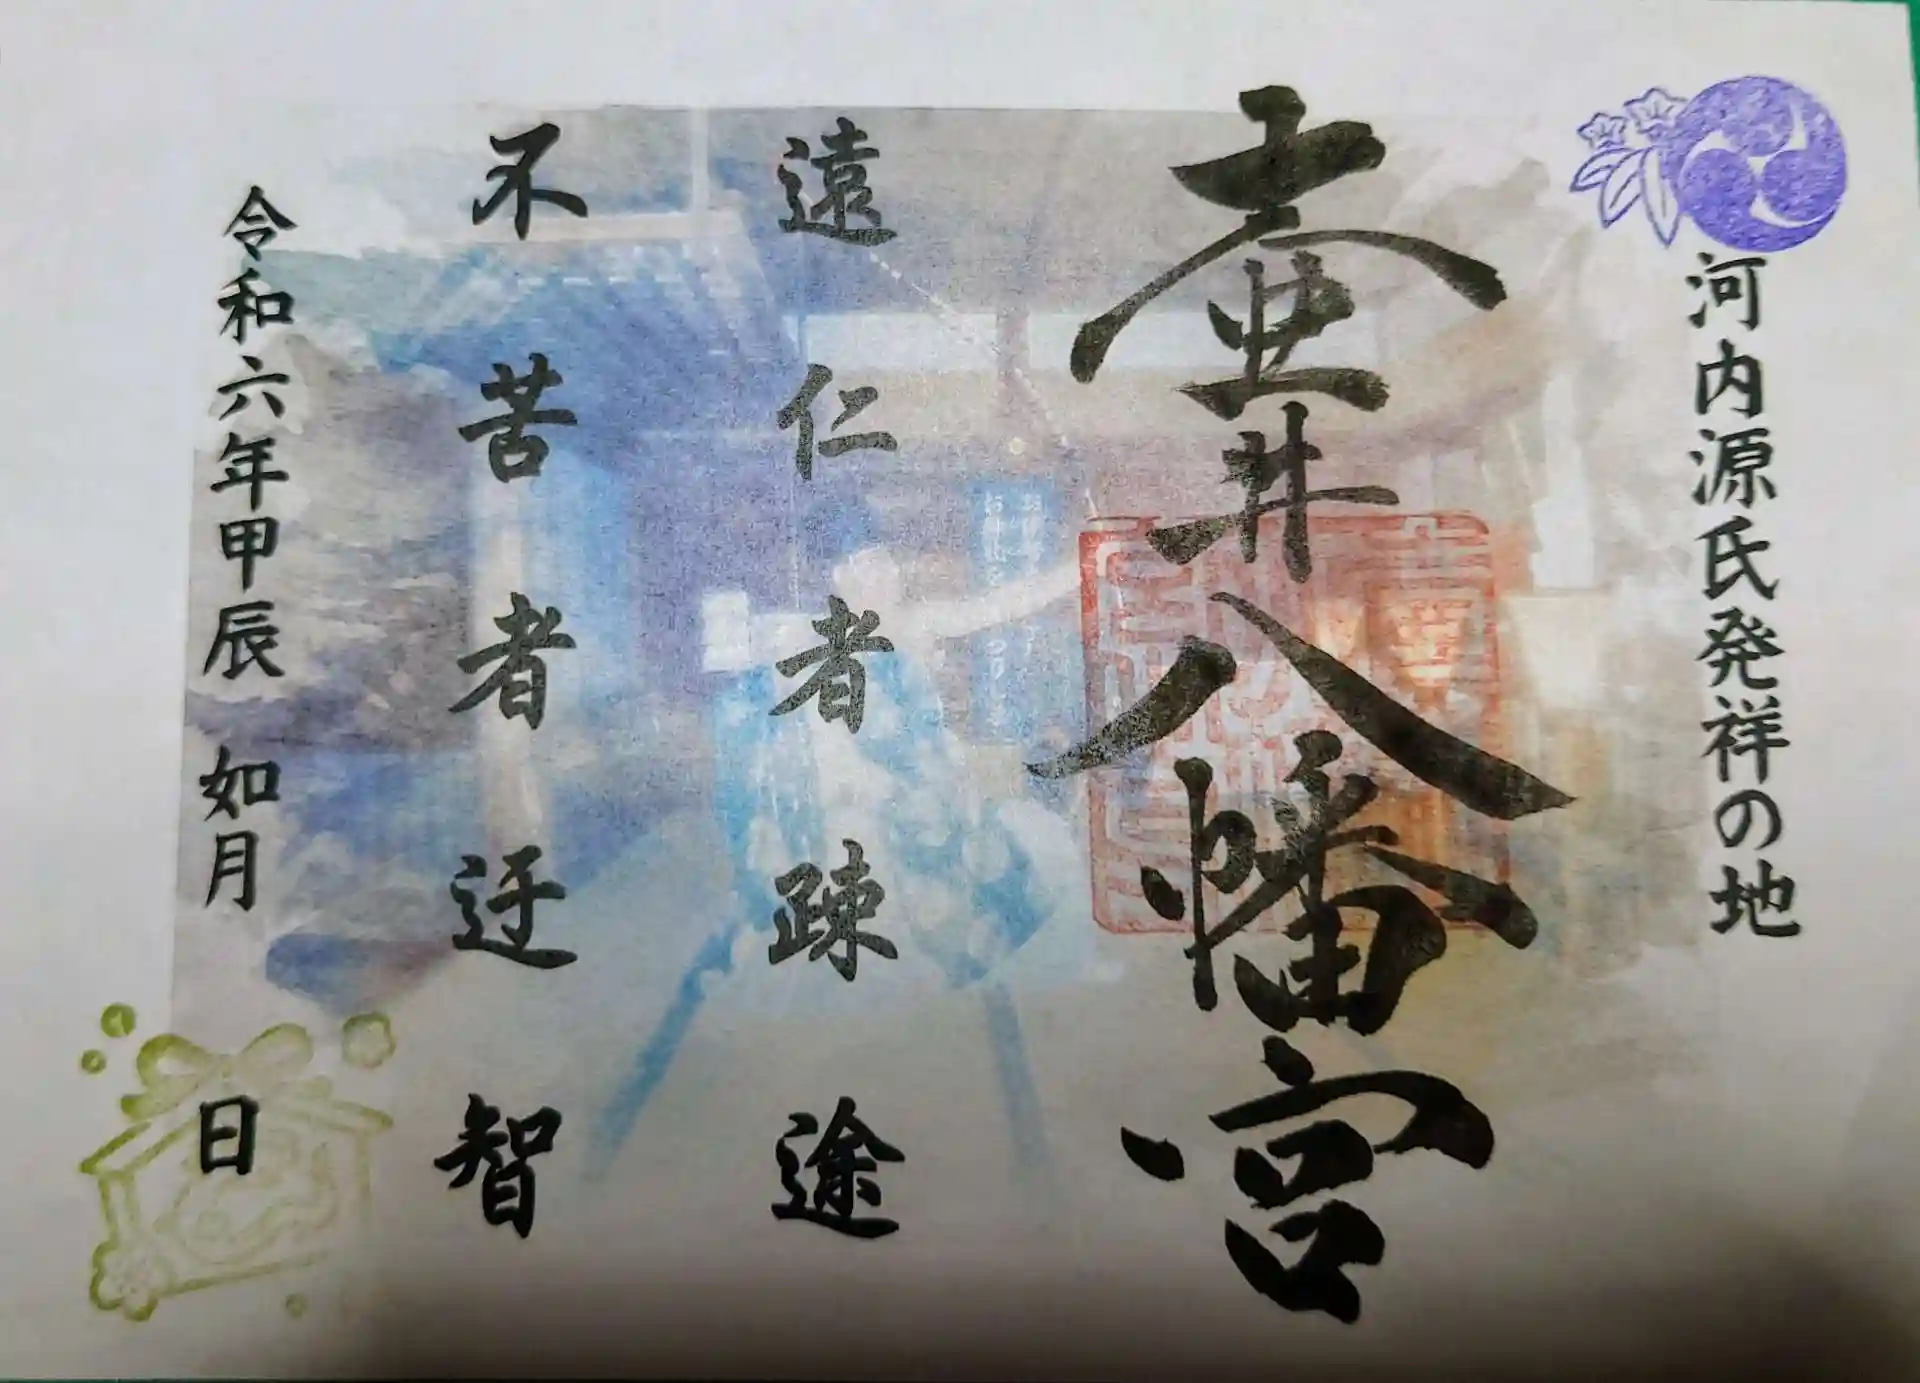 河内源氏発祥の地
壺井八幡宮
遠仁者疎途
不苦者迂智
令和六年甲辰 如月 日